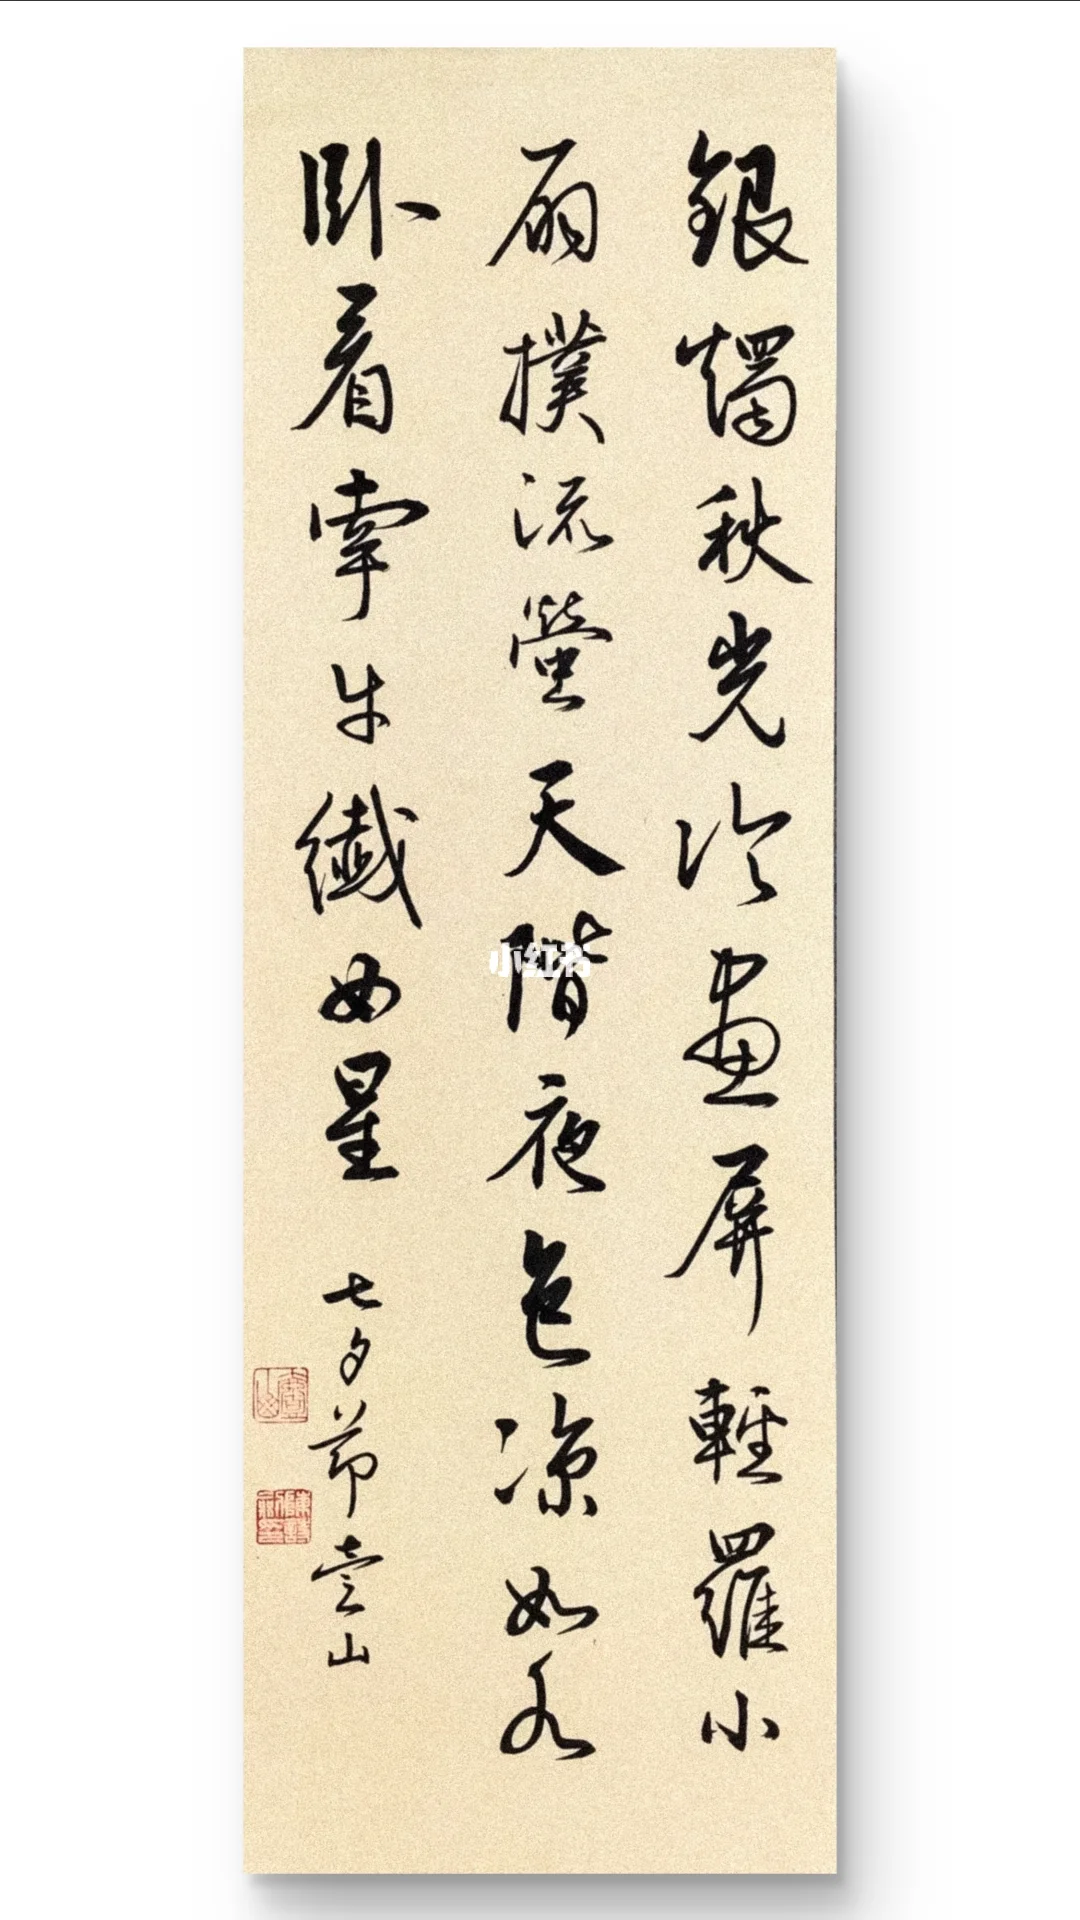 銀燭秋光冷畫屏輕羅小
扇撲流螢天階夜色凉如水
卧看牽牛織女星
七夕節山
小红书